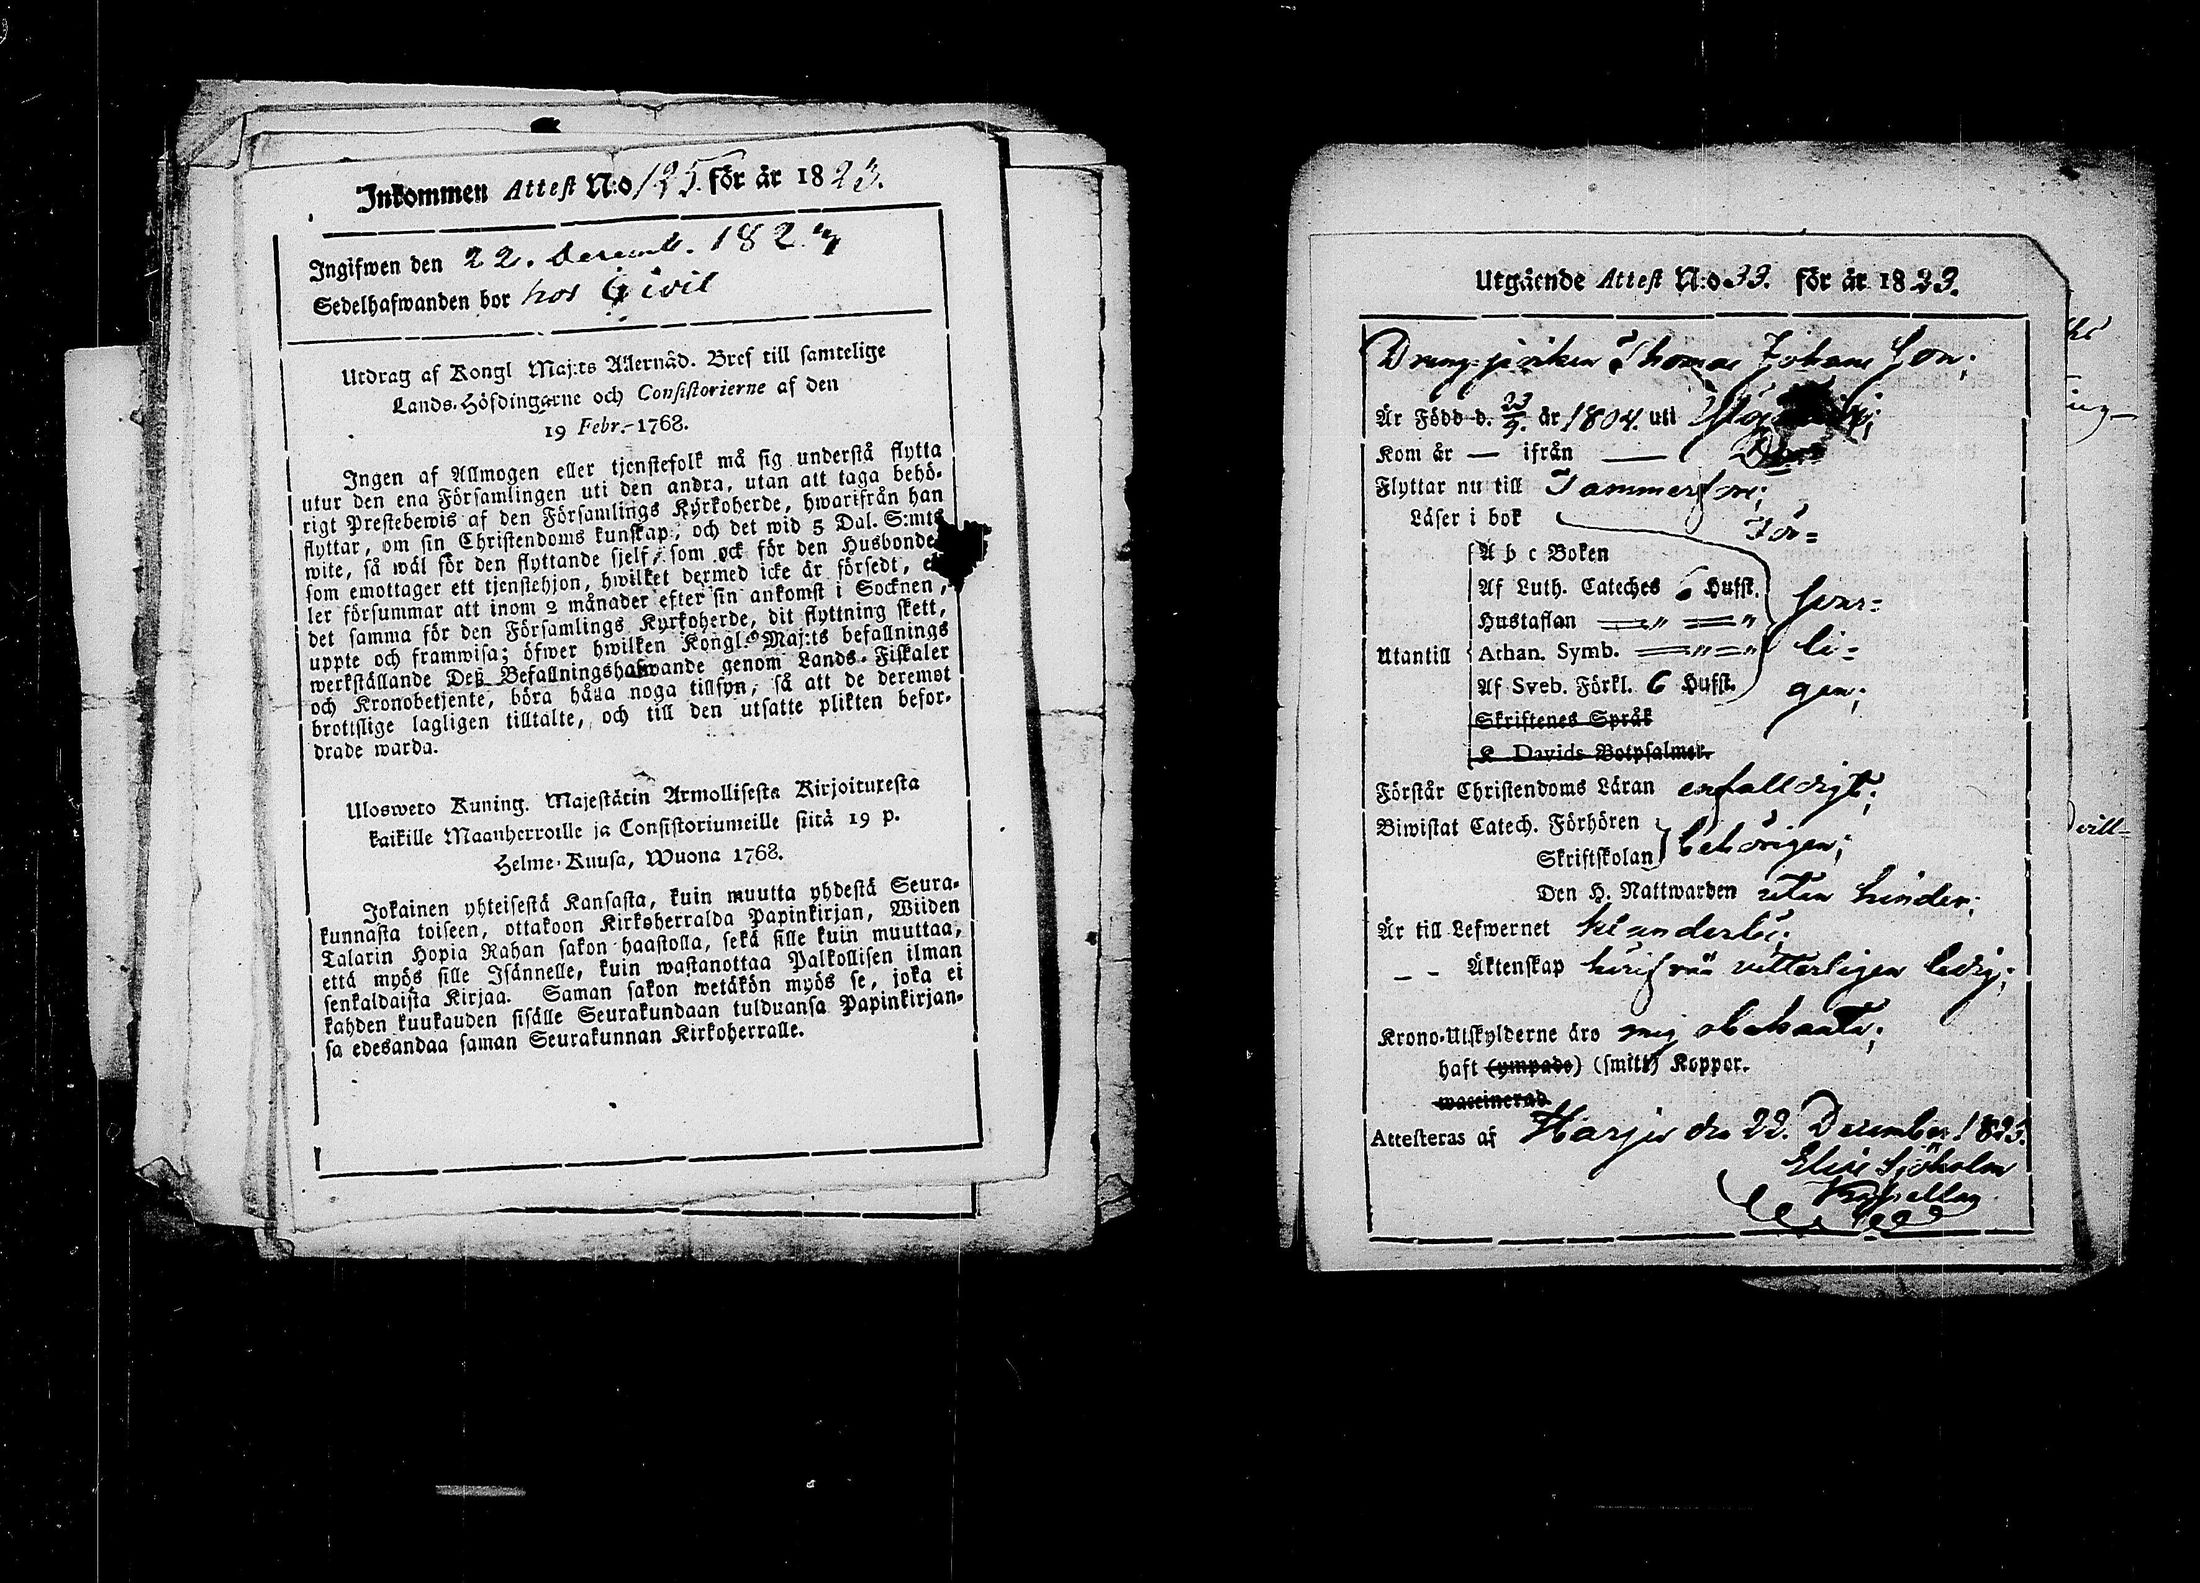 Inkommen Attest N:o 125. för år 1823.
Ingifwen den 22. Decemb. 1823
Sedelhafwanden bor hos Givil
Utdrag af Kongl Maj:ts Allernåd. Bref till samtelige
Lands-Höfdingarne och Consistorierne af den
19 Febr. 1768.
Ingen af Allmogen eller tjenstefolk må sig understå flytta
utur den ena Församlingen uti den andra, utan att taga behö-
rigt Prestebewis af den Församlings Kyrkoherde, hwarifrån han
flyttar, om sin Christendoms kunskap, och det wid 5 Dal. S:mts
wite, så wäl för den flyttande sjelf, som ock för den Husbonde
som emottager ett tjenstehjon, hwilket dermed icke är försedt, el
ler försummar att inom 2 månader efter sin ankomst i Socknen,
det samma för den Församlings Kyrkoherde, dit flyttning skett,
uppte och framwisa; öfwer hwilken Kongl. Maj:ts befallnings
werkställande Deß Befallningshafwande genom Lands-Fiskaler
och Kronobetjente, böra hålla noga tillsyn, så att de deremot
brottslige lagligen tilltalte, och till den utsatte plikten befor-
drade warda.
Ulosweto Kuning. Majestätin Armollisesta Kirjoituxesta
kaikille Maanherroille ja Consistoriumeille siitä 19 p.
Helme-Kuusa, Wuona 1768.
Jokainen yhteisestä Kansasta, kuin muutta yhdestä Seura-
kunnasta toiseen, ottakoon Kirkoherralda Papinkirjan, Wiiden
Talarin Hopia Rahan sakon haastolla, sekä sille kuin muuttaa,
että myös sille Isännelle, kuin wastanottaa Palkollisen ilman
senkaldaista Kirjaa. Saman sakon wetäkön myös se, joka ei
kahden kuukauden sisälle Seurakundaan tulduansa Papinkirjan-
sa edesandaa saman Seurakunnan Kirkoherralle.
Utgående Attest N:o 33. för år 1823.
Dreng-pojken Thomas Johans Son;
Är Född d. 23/9. år 1804. uti
Kom år — ifrån —
Flyttar nu till Tammerfors;
Läser i bok För=
A b c Boken
Af Luth. Cateches 6 Hufst. svar=
Hustaflan =" ="
Utantill Athan. Symb. =" =" li=
Af Sveb. Förkl. 6 Hufst. gen;
Skriftenes Språk
K Davids Botpsalmer.
Förstår Christendoms Läran enfalldigt;
Biwistat Catech. Förhören
Skriftskolan behörigen;
Den H. Nattwarden utan hinder;
Är till Lefwernet
– – Äktenskap härifrån vitterligen ledig;
Krono-Utskylderne äro mig obekanta;
haft (ympade) (smitt) Koppor.
waccinerad.
Attesteras af Harju den 22. December 1823.
Elias Sjöholm
Kapellan